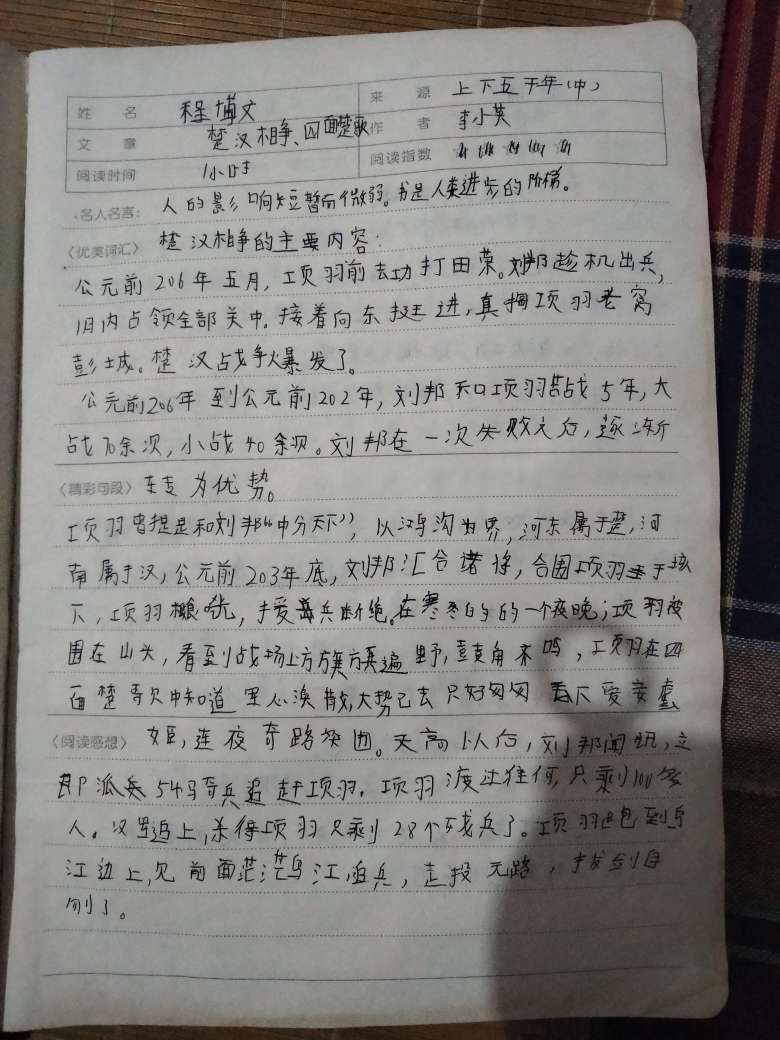 姓 名 程博文 来 源 上下五千年(中)
文 章 楚汉相争、四面楚歌 作 者 李小英
阅读时间 1小时 阅读指数 ☆☆☆☆☆
名人名言: 人的影响短暂而微弱。书是人类进步的阶梯。
〈优美词汇〉 楚汉相争的主要内容:
公元前206年五月,项羽前去功打田荣。刘邦趁机出兵,
旧内占领全部关中。接着向东挺进,真捣项羽老窝
彭城。楚汉战争爆发了。
公元前206年到公元前202年,刘邦和项羽苦战5年,大
战70余次,小战40余次。刘邦在一次失败之后,逐渐
〈精彩句段〉 转为优势。
项羽曾提是和刘邦“中分天下”,以鸿沟为界,河东属于楚,河
南属于汉,公元前203年底,刘邦汇合诸将,合围项羽于垓
下,项羽粮 ,援兵断绝。在寒冬的的一个夜晚;项羽被
围在山头,看到战场上方旗 遍野,鼓角齐鸣,项羽在四
面楚哥欠中知道军心涣散,大势已去只好匆匆丢下爱妾虞
〈阅读感想〉 姬,连夜夺路突围。天亮以后,刘邦闻讯,立
即派兵5千马奇兵追赶项羽。项羽渡过淮何,只剩100多
人。汉军追上,杀得项羽只剩28个残兵了。项羽跑到乌
江边上,见前面茫茫乌江, 兵,走投无路,拔剑自
刎了。